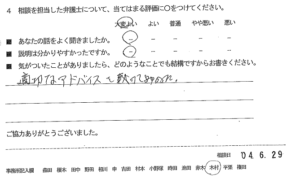 4 相談を担当した弁護士について、当てはまる評価に○をつけてください。
大変よい よい 普通 やや悪い 悪い
■ あなたの話をよく聞きましたか。 － － － － －
■ 説明は分かりやすかったですか。 － － － － －
■ 気がついたことがありましたら、どのようなことでも結構ですからお書きください。
適切なアドバイスを
ご協力ありがとうございました。
相談日 '04.6.29
事務所記入欄 森田 榎本 田中 野田 村本 小野塚 時田 鈴木 木村 平栗 篠田